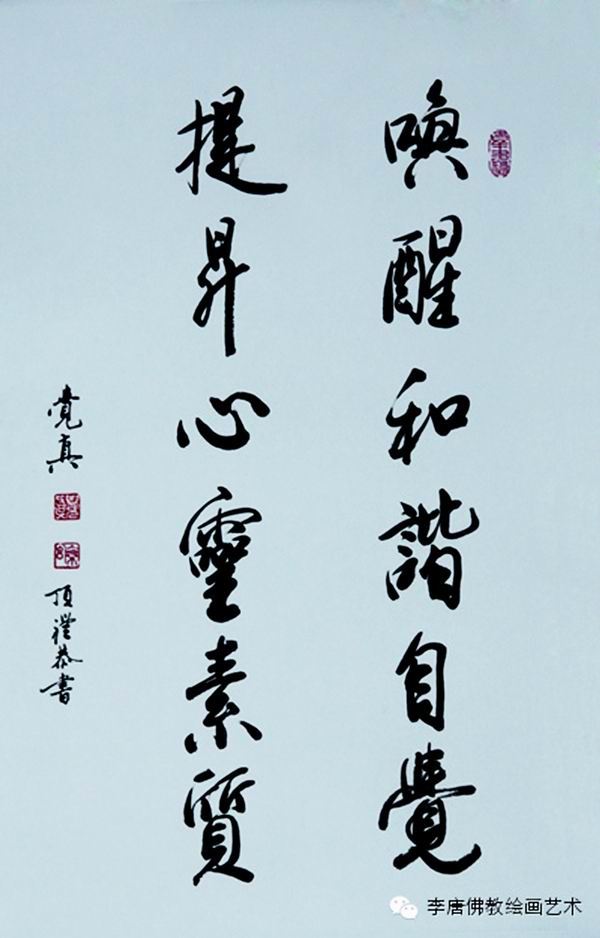 喚醒和諧自覺
提昇心靈素質
覺真
頂禮恭書
李唐佛教绘画艺术